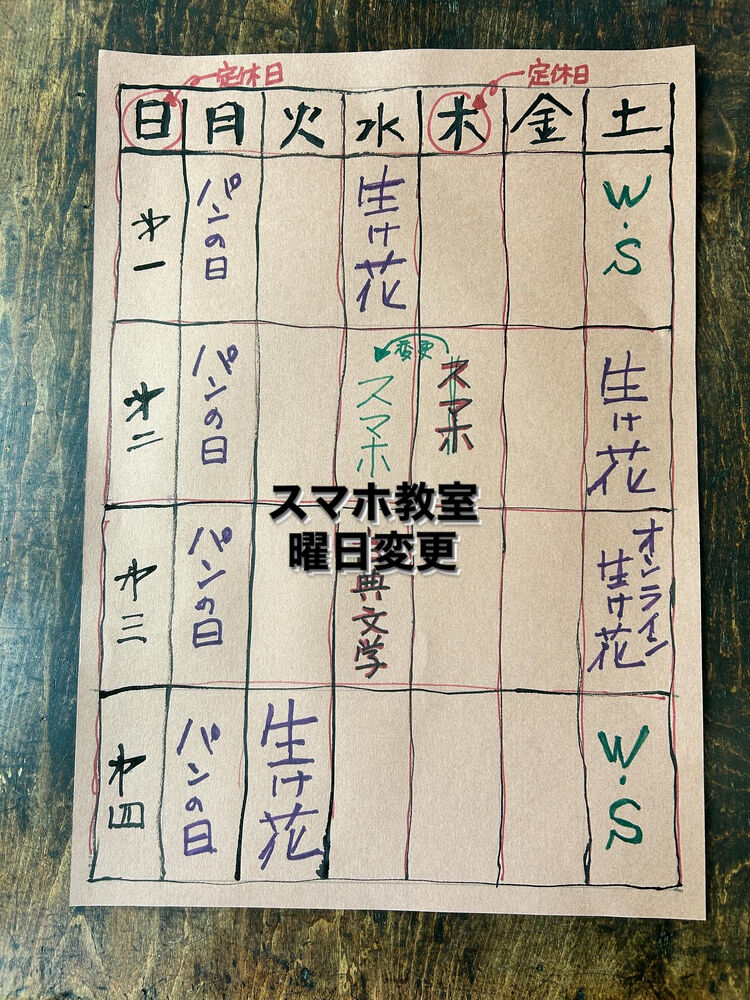 定休日 定休日
日 月 火 水 木 金 土
第一 パンの日 生け花 W.S
変更
第二 パンの日 スマホ スマホ 生け花
スマホ教室
曜日変更
第三 パンの日 典文学 オンライン生け花
第四 パンの日 生け花 W.S